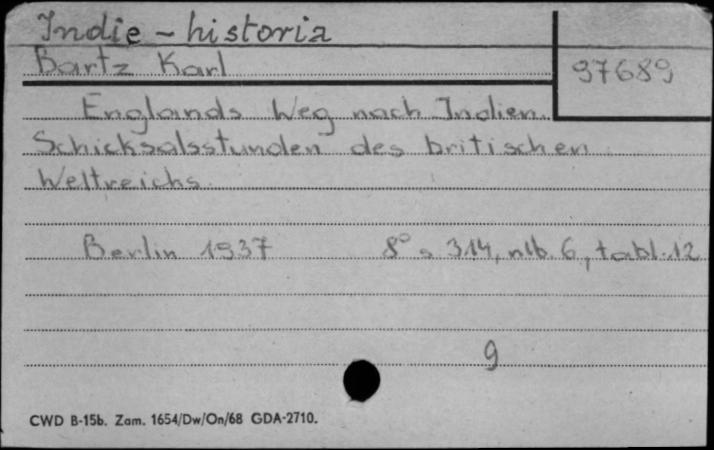 Indie - historia
Bartz Karl
97689
Englands Weg nach Indien.
Schicksalsstunden des britischen
Weltreichs.
Berlin 1937 8° s 314, nlb. 6, tabl. 12
9
CWD B-15b. Zam. 1654/Dw/On/68 GDA-2710.